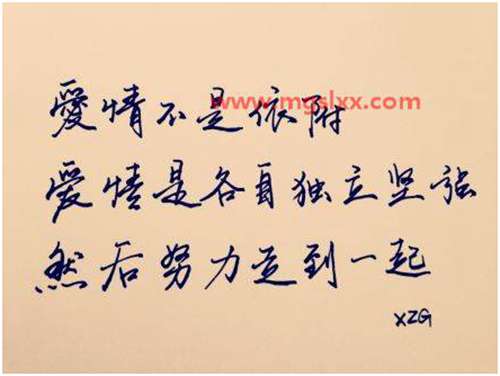 愛情不是依附
www.mgslxx.com
爱情是各自独立坚强
然后努力走到一起
XZG